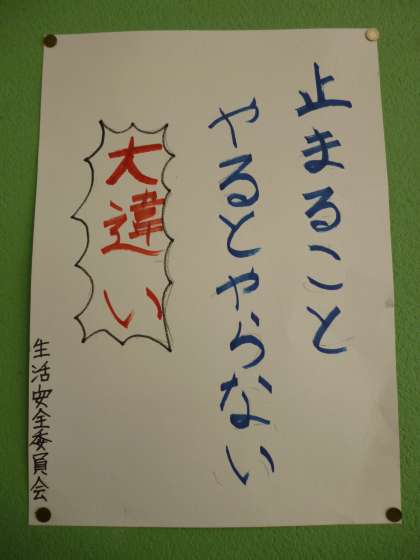 止まること
やるとやらない
大違い
生活安全委員会